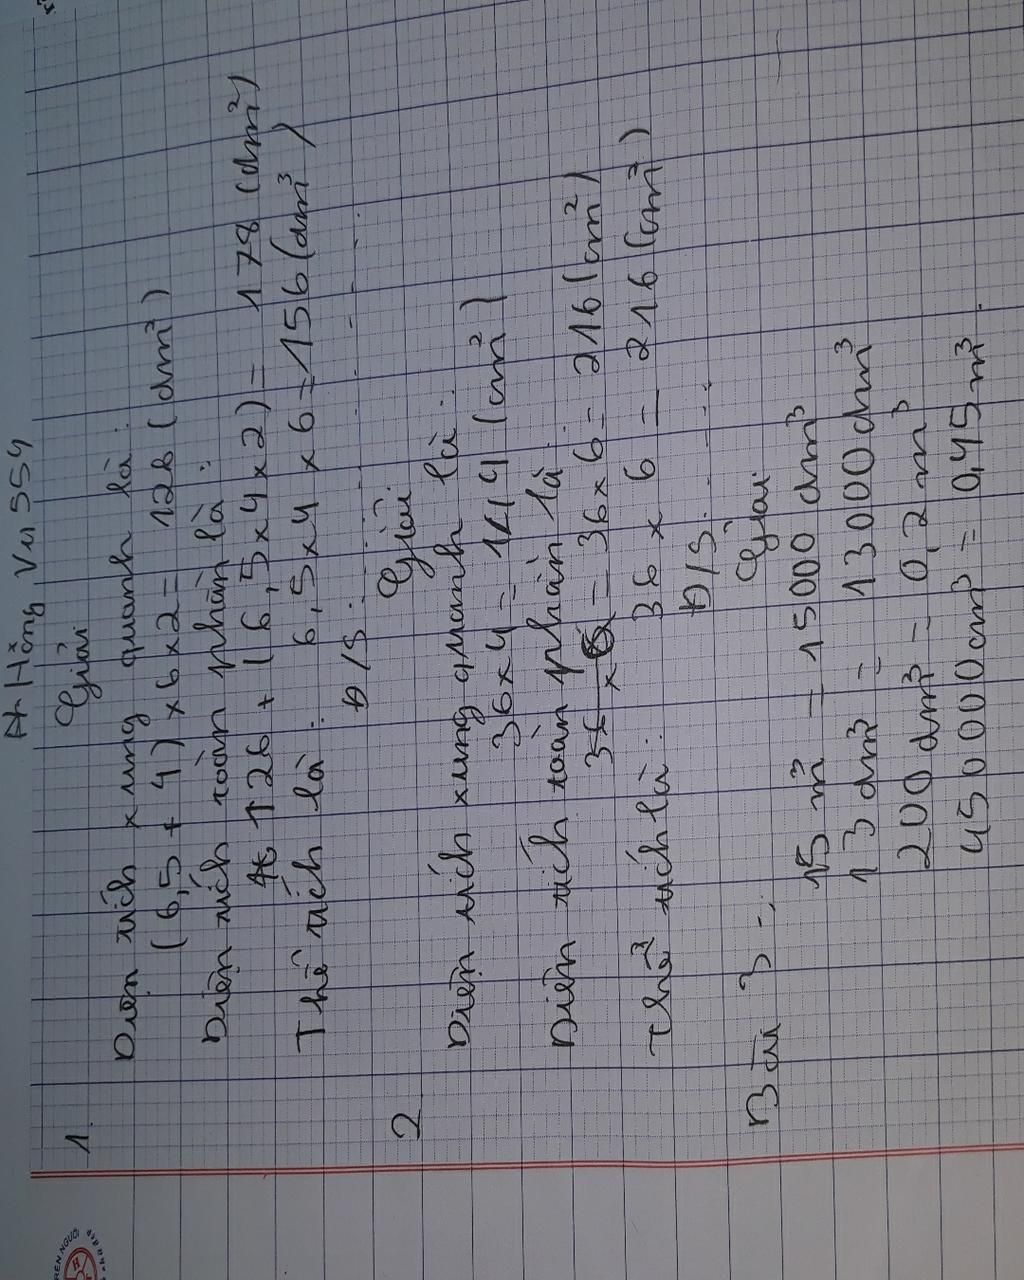 Hồng Vu 554
Giải
1. Diện tích xung quanh là:
(6,5 + 4) x 6 x 2 = 126 (dm²)
Diện tích toàn phần là:
126 + (6,5 x 4 x 2) = 178 (dm²)
Thể tích là: 6,5 x 4 x 6 = 156 (dm³)
Đ/S:
2 Giải
Diện tích xung quanh là:
36 x 4 = 144 (cm²)
Diện tích toàn phần là
36 x 6 = 36 x 6 = 216 (cm²)
Thể tích là: 36 x 6 = 216 (cm²)
Đ/S:
Giải
Bài 3:
15 m³ = 15000 dm³
13 dm³ = 13000 dm³
200 dm³ = 0,2 m³
450000cm³ = 0,45 m³.
TRÊN NGƯỜI